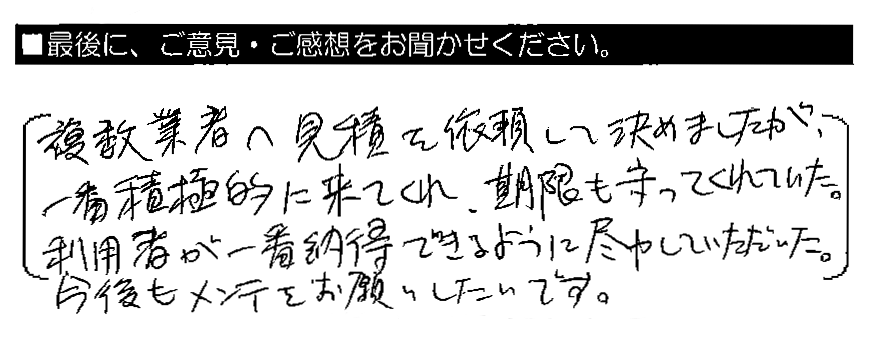 ■最後に、ご意見・ご感想をお聞かせください。
複数業者へ見積を依頼して決めましたが、
一番積極的に来てくれ、期限も守ってくれていた。
利用者が一番納得できるように尽力していただいた。
今後もメンテをお願いしたいです。